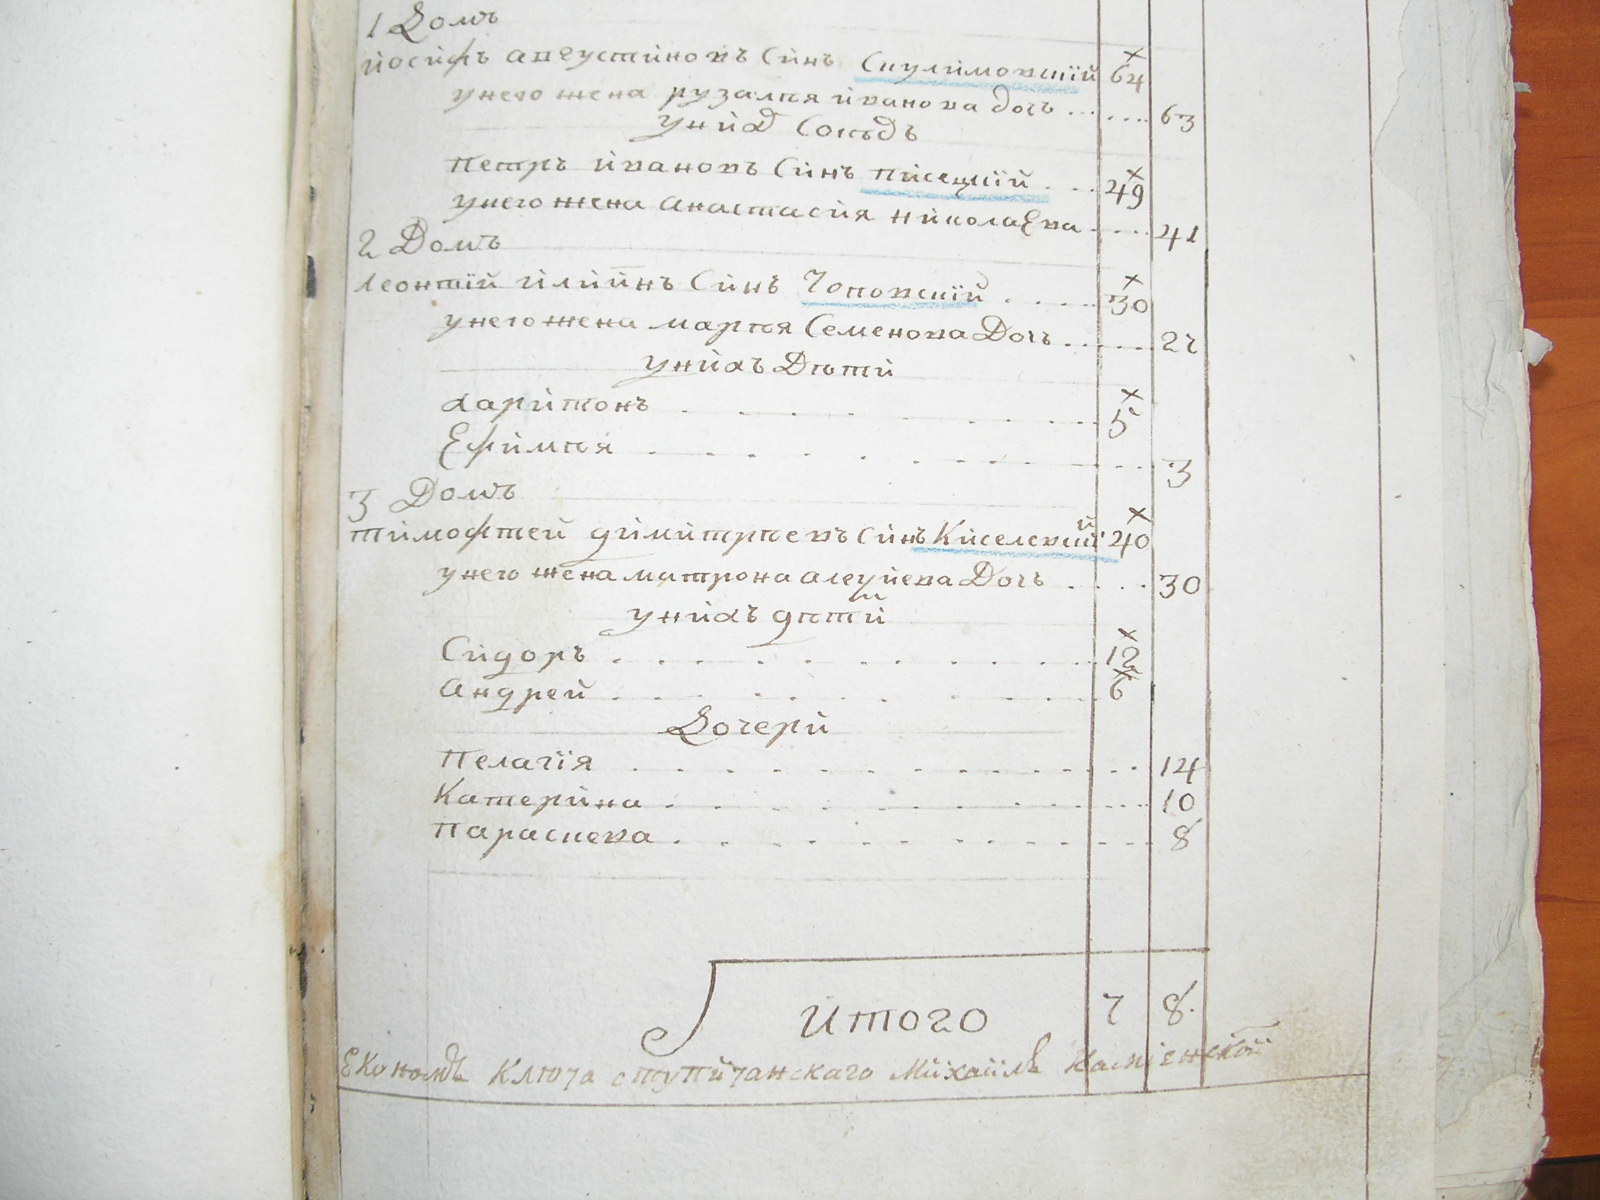 1 Домъ
йосифъ августиновъ синъ Скулимовский 64
у него жена рузалія иванова дочъ 63
у них сосѣдъ
петръ ивановъ синъ писецкий 49
у него жена анастасия николаева 41
2 Домъ
леонтий илийнъ синъ Чоповский 30
у него жена марѣя Семенова Дочъ 22
у нихъ Дѣти
харитонъ 5
Ефимѣя 3
3 Домъ
тимофтей димитрѣевъ синъ Киселевский 40
у него жена матрона Дочъ 30
у нихъ дѣтий
Сидоръ 12
андрей 6
Дочери
пелагія 14
Катерина 10
параскева 8
итого 7 8
Економъ Ключа ступичанскаго Михаилъ